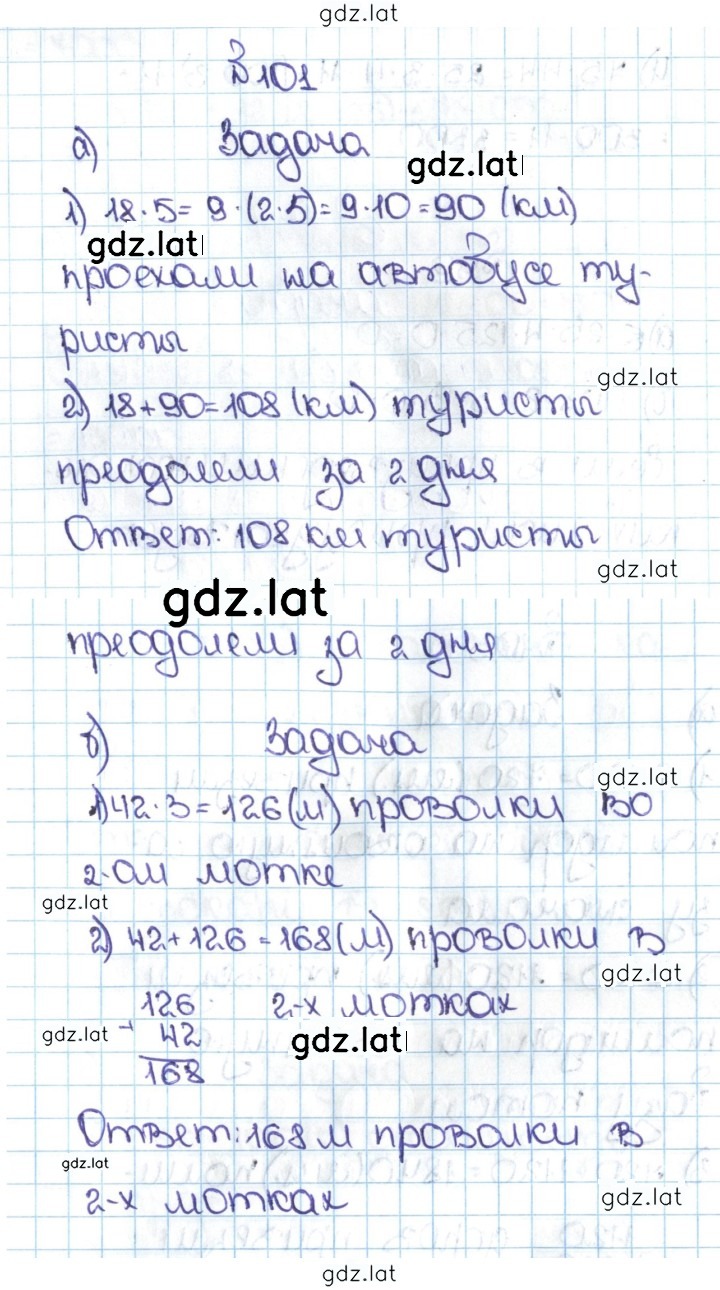 gdz.lat
№ 101
а) Задача
gdz.lat
1) 18·5= 9·(2·5)= 9·10=90 (км)
gdz.lat
проехали на автобусе ту-
ристы
gdz.lat
2) 18+90=108 (км) туристы
преодолели за 2 дня
Ответ: 108 км туристы
gdz.lat
gdz.lat
преодолели за 2 дня
б) Задача
gdz.lat
1) 42·3=126(м) проволки во
2-ом мотке
gdz.lat
2) 42+126=168(м) проволки в
gdz.lat
126 2-х мотках
gdz.lat + 42 gdz.lat
168
Ответ: 168 м проволки в
gdz.lat
2-х мотках
gdz.lat
gdz.lat